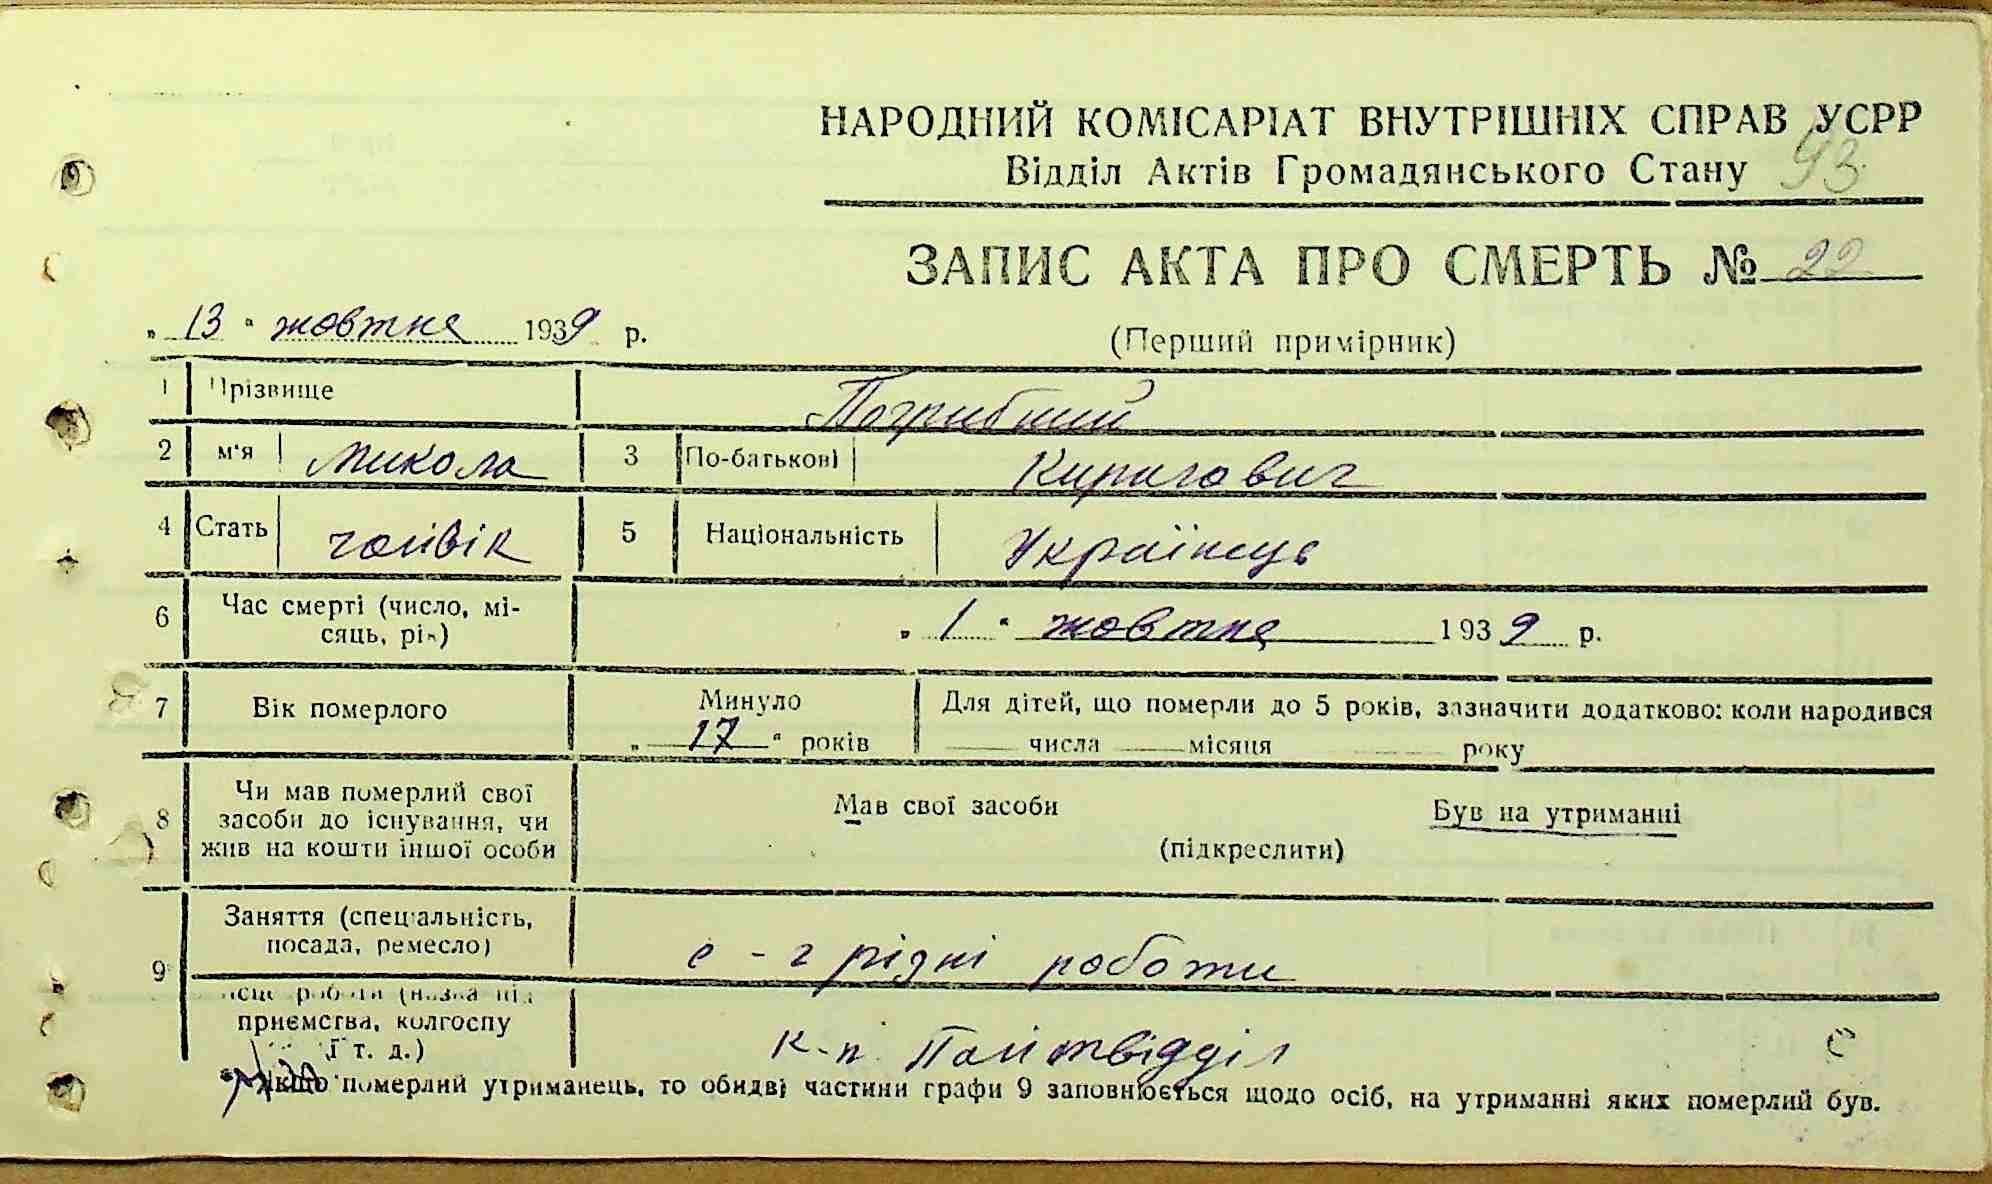 НАРОДНИЙ КОМІСАРІАТ ВНУТРІШНІХ СПРАВ УСРР
Відділ Актів Громадянського Стану 93
ЗАПИС АКТА ПРО СМЕРТЬ № 22
„ 13 " жовтня 1939 р. (Перший примірник)
1 Прізвище Погрибний
2 м'я Микола 3 По-батькові Кирилович
4 Стать чоловік 5 Національність Українець
6 Час смерті (число, мі-
сяць, рік) „ 1 " жовтня 1939 р.
7 Вік померлого Минуло Для дітей, що померли до 5 років, зазначити додатково: коли народився
„ 17 " років числа місяця року
8 Чи мав померлий свої
засоби до існування, чи
жив на кошти іншої особи
Мав свої засоби Був на утриманні
(підкреслити)
9 Заняття (спеціальність,
посада, ремесло) с-г різні роботи
приємства, колгоспу
і т. д.) к-п. Політвідділ
Якщо померлий утриманець, то обидві частини графи 9 заповнюється щодо осіб, на утриманні яких померлий був.